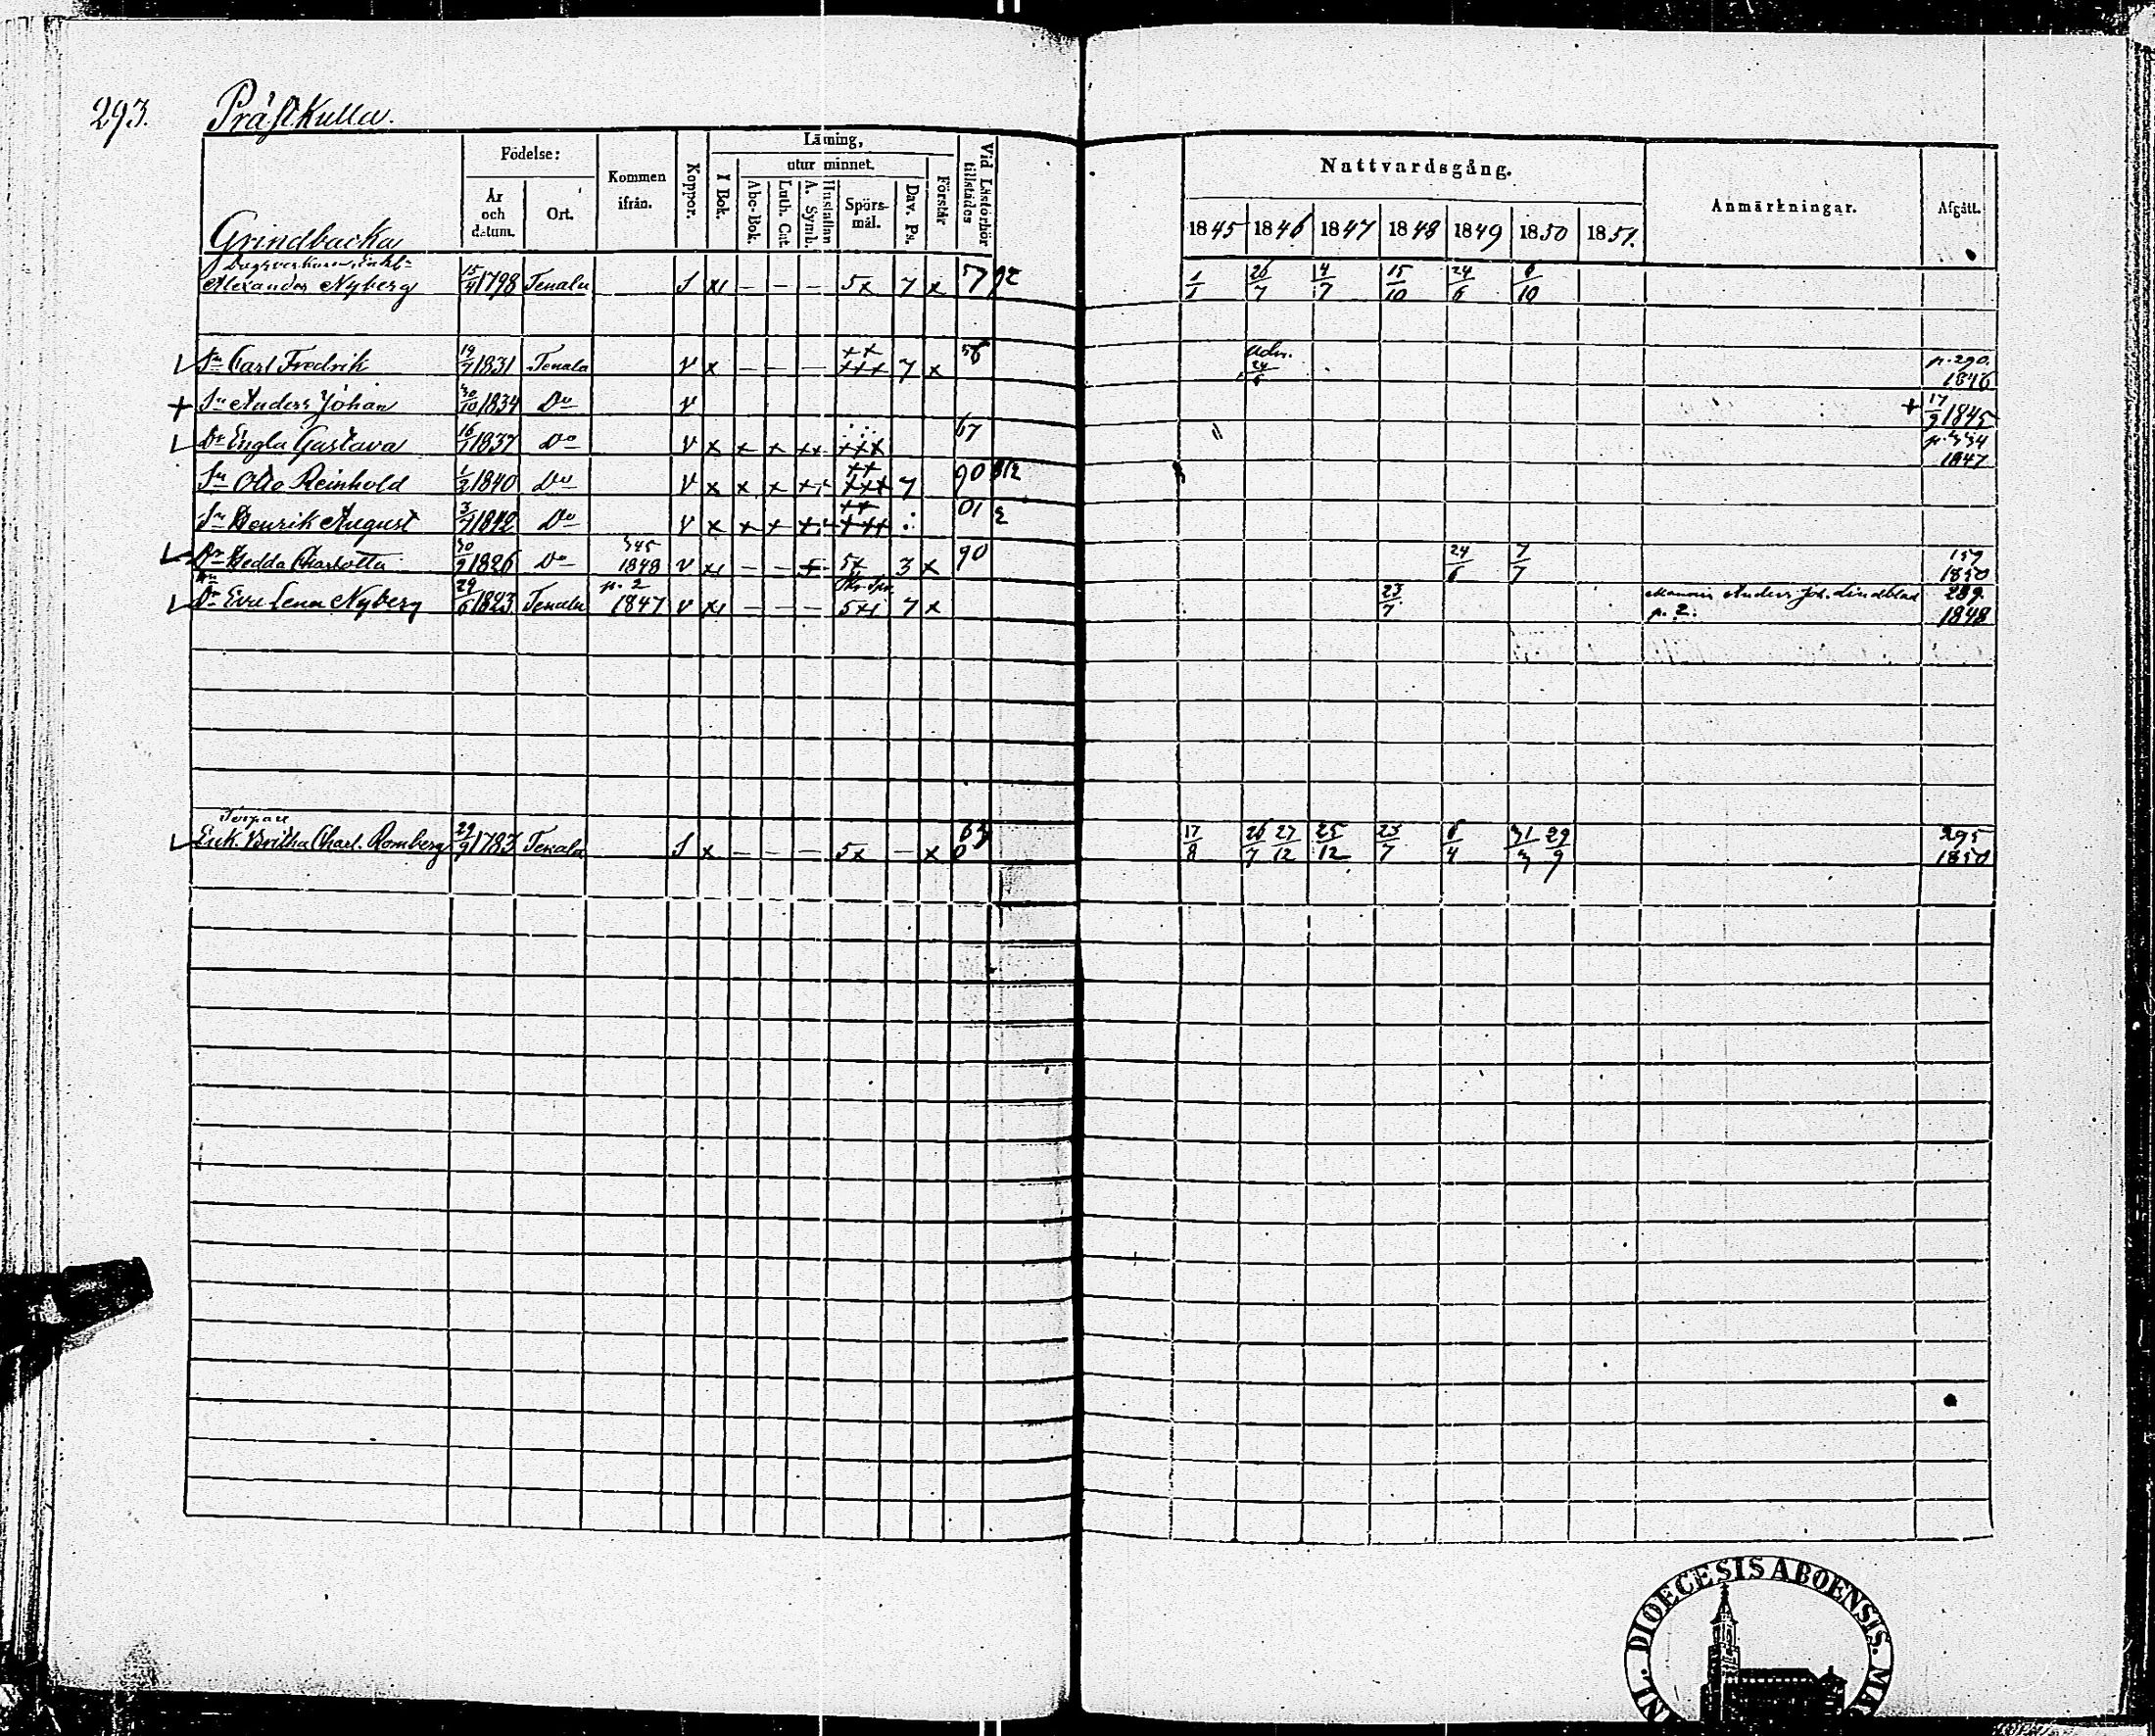 293. Präskulla.
Födelse: Kommen ifrån. Koppor. Läsning, Vid Läsförhör tillstädes
År och datum. Ort. I Bok. utur minnet. Förstår
Abc-Bok. Luth. Cat. A. Symb. Hustaflan Spörsmål. Dav. Ps.
Nattvardsgång. Anmärkningar. Afgått.
1845 1846 1847 1848 1849 1850 1851.
Grindbacka
Alexander Nyberg 15/4 1798 Tenala S x1 — — — 5x 7 x 57 92 1/1 26/7 4/7 15/10 24/6 6/10
Sn Carl Fredrik 19/7 1831 Tenala v x — — — ++ +++ 7 x 56 Adm. 24/6 p. 290. 1846
+ Sn Anders Johan 30/10 1834 Do v + 17/9 1845
Dr Engla Gustava 16/1 1837 Do v x + + ++ +++ 67 " p. 334 1847
Sn Otto Reinhold 1/2 1840 Do v x x + ++ ++ +++ 7 90
Sn Henrik August 3/7 1842 Do v x + + ++ +++ 01 2
Dr Hedda Charlotta 30/9 1826 Do 345 1848 v x1 — — + 5x 3 x 90 24/6 7/7 157 1850
Dr Eva Lena Nyberg 29/6 1823 Tenala p. 2 1847 v x1 — — — 5x1 7 x 23/7 Mannen Anders Joh. Lindblad p. 2. 289. 1848
Torpare
Enk. Britha Charl. Romberg 29/9 1783 Tenala S x — — — 5x — x 63 0 17/8 26/7 27/12 25/12 23/7 6/4 31/3 29/9 295 1850
DIOECESIS ABOENSIS.